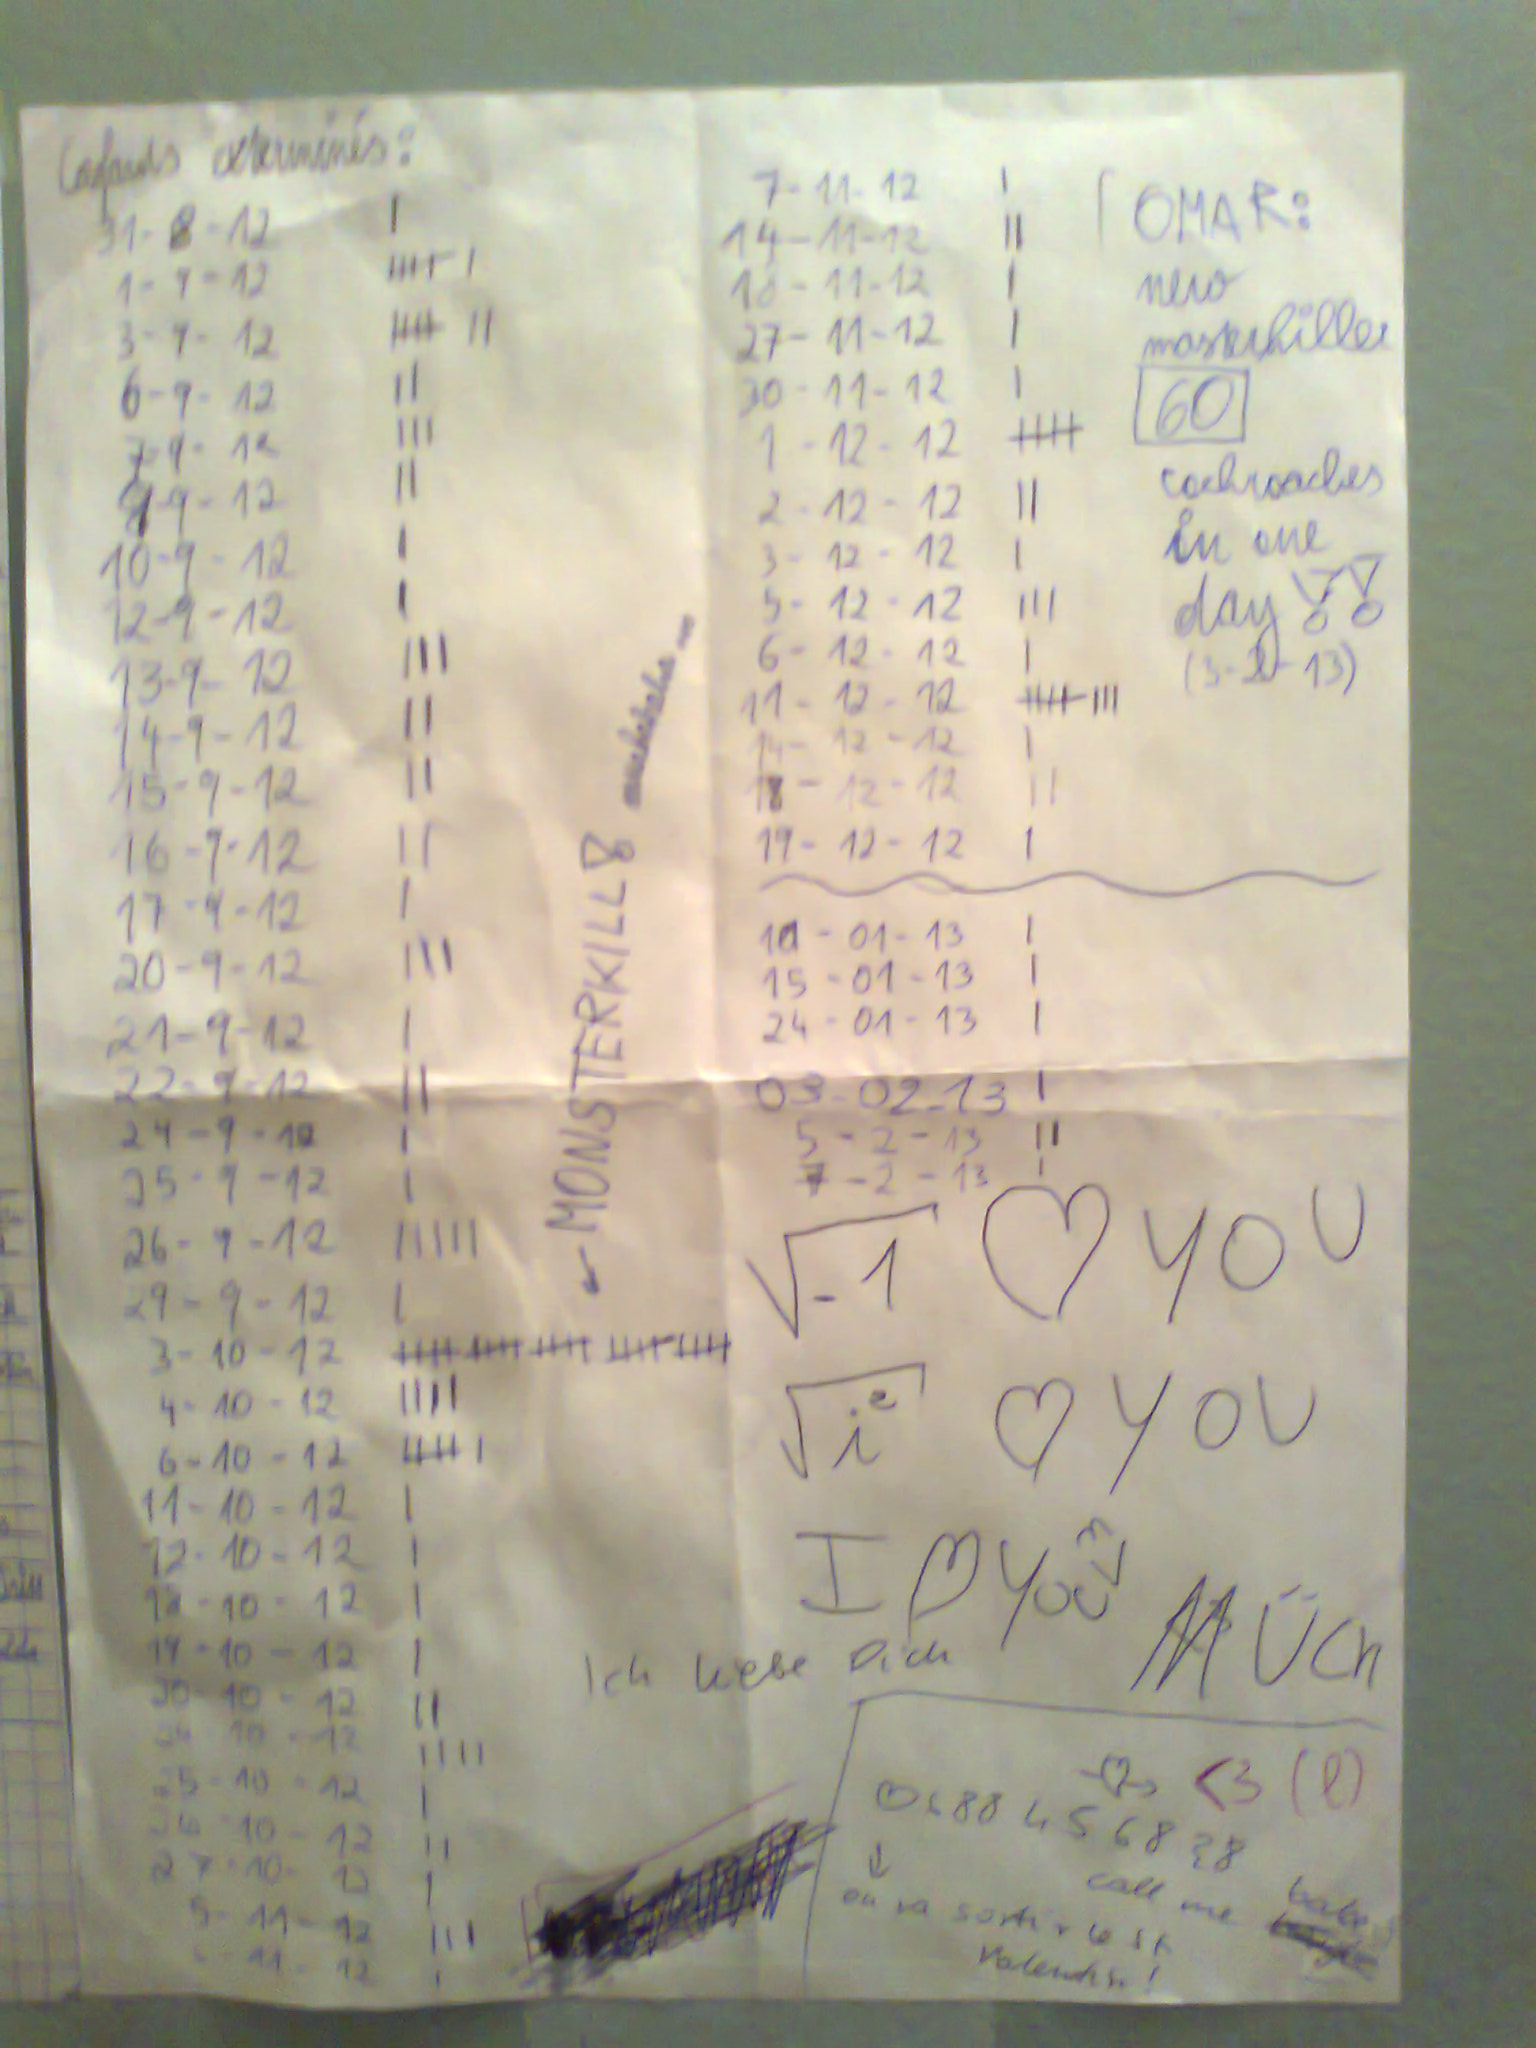 Cafards exterminés:
31-8-12 |
1-9-12 |||| |
3-9-12 |||| ||
6-9-12 ||
7-9-12 |||
9-9-12 ||
10-9-12 |
12-9-12 |
13-9-12 |||
14-9-12 ||
15-9-12 ||
16-9-12 ||
17-9-12 |
20-9-12 |||
21-9-12 |
22-9-12 ||
24-9-12 |
25-9-12 |
26-9-12 |||||
29-9-12 |
3-10-12 |||| |||| |||| |||| ||||
4-10-12 ||||
6-10-12 |||| |
11-10-12 |
12-10-12 |
10-12 |
19-10-12 |
10-12 ||
10-12 ||||
25-10-12 |
26-10-12 ||
27-10-12 |
5-11-12 |||
11-12 |
MONSTERKILL
7-11-12 |
14-11-12 ||
18-11-12 |
27-11-12 |
30-11-12 |
1-12-12 ||||
2-12-12 ||
3-12-12 |
5-12-12 |||
6-12-12 |
11-12-12 |||| |||
14-12-12 |
18-12-12 ||
19-12-12 |
10-01-13 |
15-01-13 |
24-01-13 |
03-02-13 |
5-2-13 ||
7-2-13 |
OMAR:
new
masterkiller
60
cockroaches
in one
day !!
(3-2-13)
√-1 ♡ YOU
√i ♡ YOU
I ♡ YOU
MÜCH
Ich liebe Dich
<3 (l)
88 45 68 28
call me babe
on va sortir le St
Valentin!